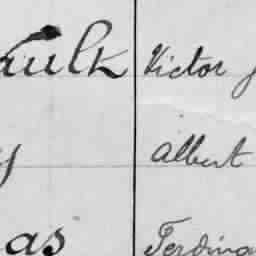 aulk Victor J
y Albert
as Ferdina